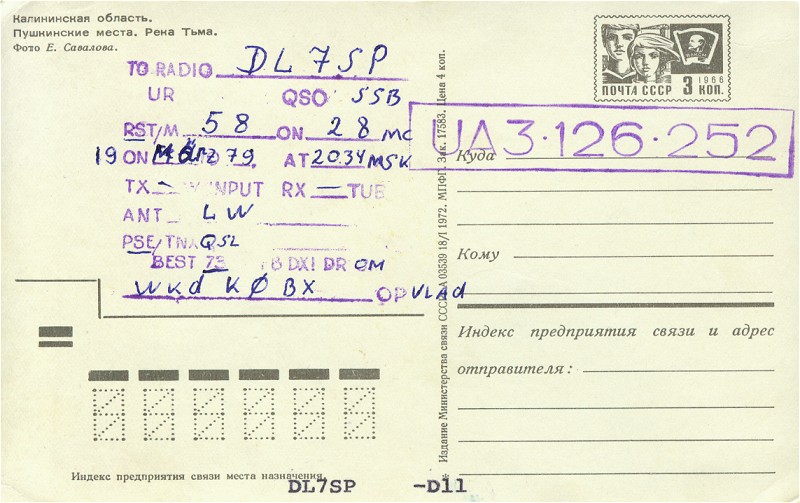 Калининская область.
Пушкинские места. Река Тьма.
Фото Е. Савалова.
TO RADIO DL7SP
UR QSO SSB
RST/M 58 ON 28 MC
19 ON März 79. AT 20.34 MSK
TX INPUT RX — TUB
ANT LW
PSE/TNX QSL
BEST 73 B DX! DR OM
wkd KØBX OP VLAD
Индекс предприятия связи места назначения
DL7SP -D11
Издание Министерства связи СССР. А 03539 18/I 1972. МПФГ. Зак. 17583. Цена 4 коп.
ПОЧТА СССР 3 КОП.
1966
UA3·126·252
Куда
Кому
Индекс предприятия связи и адрес
отправителя: